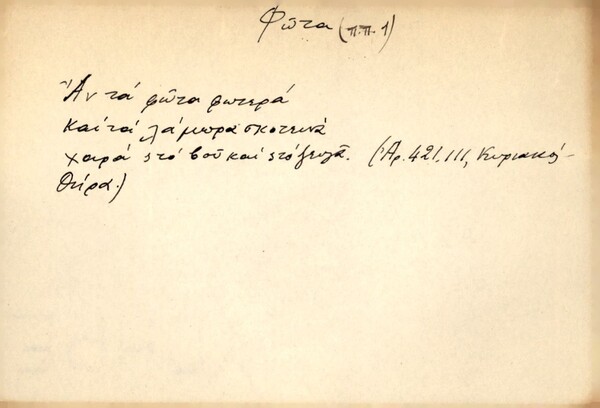 Φῶτα (π.π. 1)
Ἂν τά φῶτα φωτερά
καί τά λάμπρα σκοτεινά
χαρά στό βοῦ καί στό ζευγᾶ. (Ἀρ. 421. III, Κυριακοῦ-
Θήρα.)